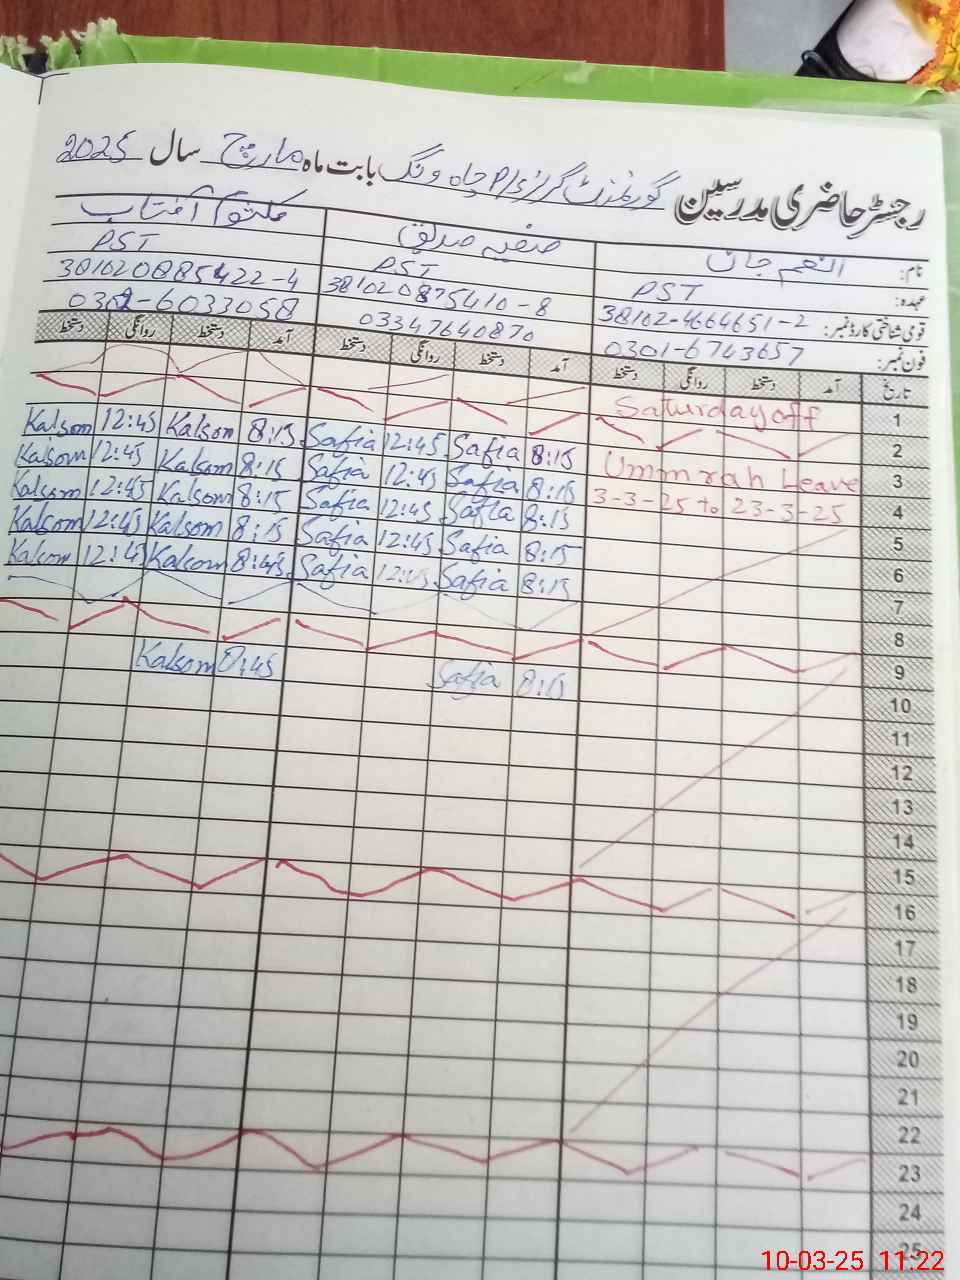 رجسٹر حاضری مدرسین گورنمنٹ گرلز P/S چاہ ونگ بابت ماہ مارچ سال 2025
نام: انعم جان صفیہ صدیق کلثوم آفتاب
عہدہ: PST PST PST
قومی شناختی کارڈ نمبر: 38102-4664651-2 381020875410-8 381020885422-4
فون نمبر: 0301-6743657 03347640870 0302-6033058
تاریخ آمد دستخط روانگی دستخط آمد دستخط روانگی دستخط آمد دستخط روانگی دستخط
Saturday off 1
2
Kalsom 12:45 Kalsom 8:15 Safia 12:45 Safia 8:15 Ummrah Leave 3
Kalsom 12:45 Kalsom 8:15 Safia 12:45 Safia 8:15 3-3-25 to 23-3-25 4
Kalsom 12:45 Kalsom 8:15 Safia 12:45 Safia 8:15 5
Kalsom 12:45 Kalsom 8:15 Safia 12:45 Safia 8:15 6
Kalsom 12:45 Kalsom 8:45 Safia 12:45 Safia 8:15 7
8
9
Kalsom 8:45 Safia 8:15 10
11
12
13
14
15
16
17
18
19
20
21
22
23
24
25
10-03-25 11:22